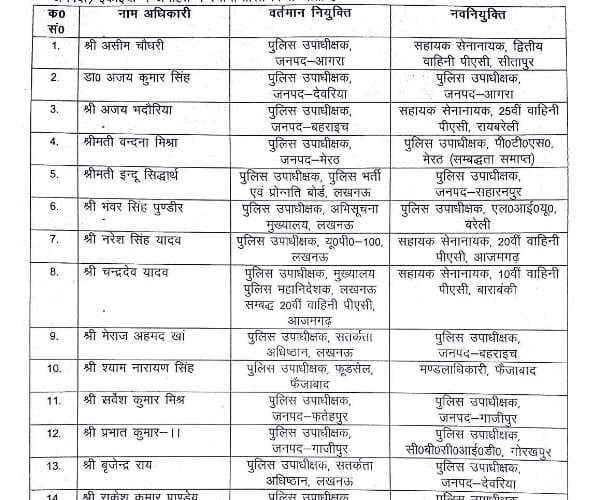 क0 सं0 | नाम अधिकारी | वर्तमान नियुक्ति | नवनियुक्ति
1. श्री असीम चौधरी | पुलिस उपाधीक्षक, जनपद–आगरा | सहायक सेनानायक, द्वितीय वाहिनी पीएसी, सीतापुर
2. डा0 अजय कुमार सिंह | पुलिस उपाधीक्षक, जनपद–देवरिया | पुलिस उपाधीक्षक, जनपद–आगरा
3. श्री अजय भदौरिया | पुलिस उपाधीक्षक, जनपद–बहराइच | सहायक सेनानायक, 25वीं वाहिनी पीएसी, रायबरेली
4. श्रीमती वन्दना मिश्रा | पुलिस उपाधीक्षक, जनपद–मेरठ | पुलिस उपाधीक्षक, पी0टी0एस0, मेरठ (सम्बद्धता समाप्त)
5. श्रीमती इन्दू सिद्धार्थ | पुलिस उपाधीक्षक, पुलिस भर्ती एवं प्रोन्नति बोर्ड, लखनऊ | पुलिस उपाधीक्षक, जनपद–सहारनपुर
6. श्री भंवर सिंह पुण्डीर | पुलिस उपाधीक्षक, अभिसूचना मुख्यालय, लखनऊ | पुलिस उपाधीक्षक, एल0आई0यू0, बरेली
7. श्री नरेश सिंह यादव | पुलिस उपाधीक्षक, यू0पी0–100, लखनऊ | सहायक सेनानायक, 20वीं वाहिनी पीएसी, आजमगढ़
8. श्री चन्द्रदेव यादव | पुलिस उपाधीक्षक, मुख्यालय पुलिस महानिदेशक, लखनऊ सम्बद्ध 20वीं वाहिनी पीएसी, आजमगढ़ | सहायक सेनानायक, 10वीं वाहिनी पीएसी, बाराबंकी
9. श्री मेराज अहमद खां | पुलिस उपाधीक्षक, सतर्कता अधिष्ठान, लखनऊ | पुलिस उपाधीक्षक, जनपद–बहराइच
10. श्री श्याम नारायण सिंह | पुलिस उपाधीक्षक, फूडसेल, फैजाबाद | मण्डलाधिकारी, फैजाबाद
11. श्री सर्वेश कुमार मिश्र | पुलिस उपाधीक्षक, जनपद–फतेहपुर | पुलिस उपाधीक्षक, जनपद–गाजीपुर
12. श्री प्रभात कुमार–।। | पुलिस उपाधीक्षक, जनपद–गाजीपुर | पुलिस उपाधीक्षक, सी0बी0सी0आई0डी0, गोरखपुर
13. श्री बृजेन्द्र राय | पुलिस उपाधीक्षक, सतर्कता अधिष्ठान, लखनऊ | पुलिस उपाधीक्षक, जनपद–देवरिया
14. श्री राकेश कुमार पाण्डेय | पुलिस उपाधीक्षक, | पुलिस उपाधीक्षक,